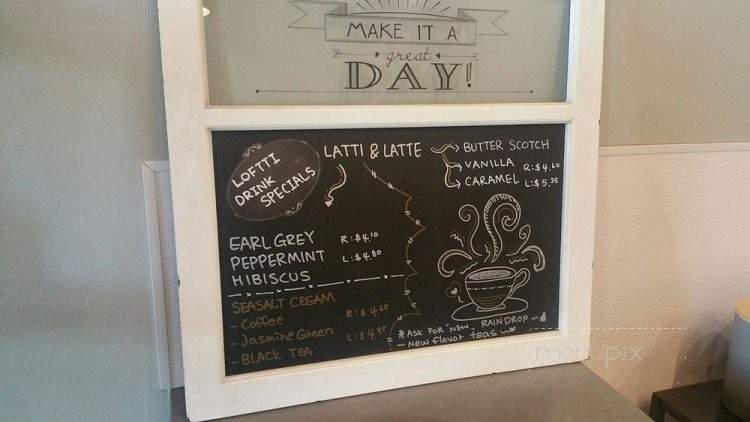 MAKE IT A
great
DAY!
LOFTTI
DRINK
SPECIALS
LATTI & LATTE
BUTTER SCOTCH
VANILLA
CARAMEL
R: $4.60
L: $5.35
EARL GREY
PEPPERMINT
HIBISCUS
R: $4.10
L: $4.80
SEASALT CREAM
- Coffee
- Jasmine Green
- BLACK TEA
R: $4.25
L: $4.95
RAINDROP
*ASK FOR NEW
NEW flavor teas
menupix